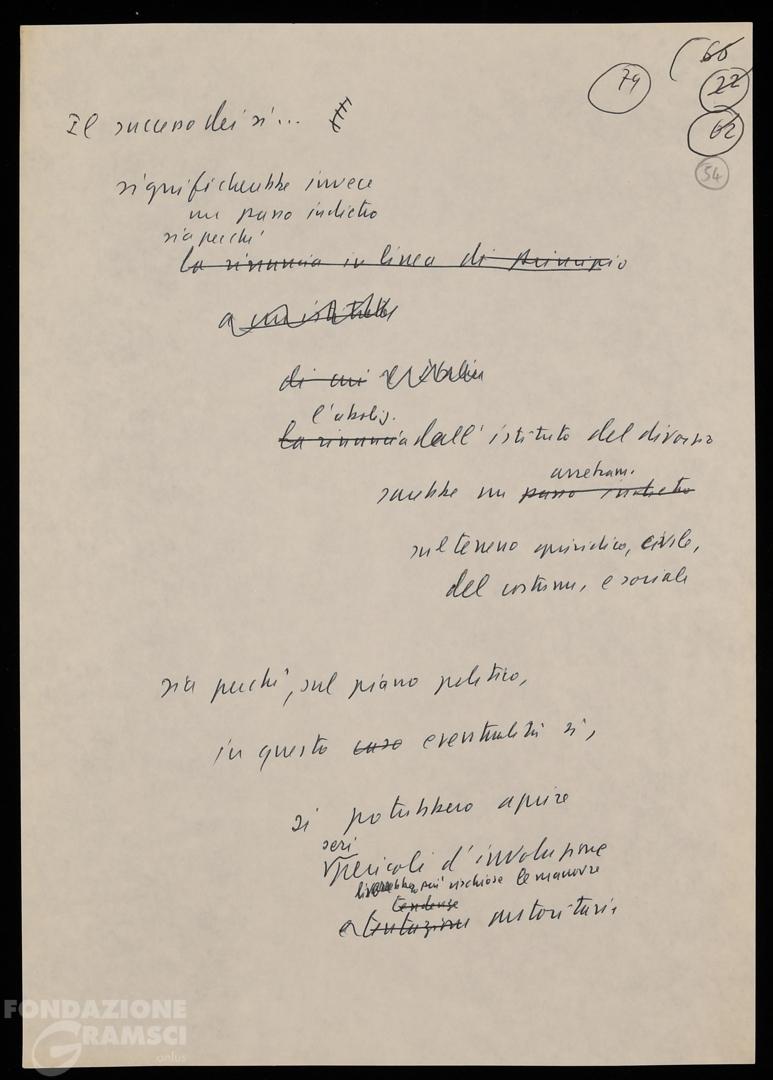 74
66
22
62
54
Il successo dei sì...
significherebbe invece
un passo indietro
sia perché
la rinuncia in linea di principio
a un istituto
di cui
l'aboliz.
la rinuncia dell'istituto del divorzio
arretram.
sarebbe un passo indietro
sul terreno giuridico, civile,
del costume, e sociale
sia perché, sul piano politico,
in questo caso eventualità sì,
si potrebbero aprire
seri
pericoli d'involuzione
più rischiose le manovre
tendenze
e tentazioni autoritarie
FONDAZIONE
GRAMSCI
onlus